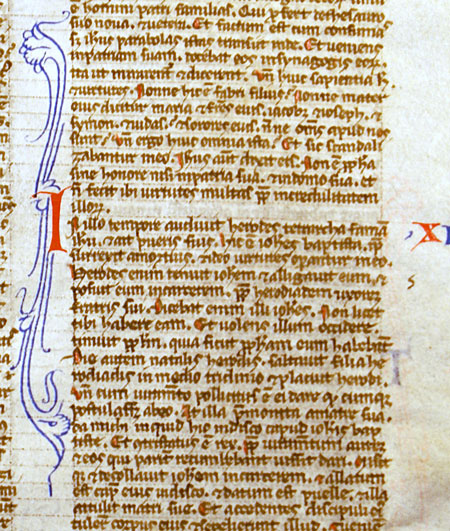 e homini patri familias. Qui ꝓfert de thesauro
suo noua. & uetera. Et factum est cum consūmas
s; ihc parabolas istas transiit inde. Et ueniens
inpatriam suam. docebat eos insynagogis eoꝝ.
ita ut mirarent & dicerent. Vn̄ huic sapientia h̄
& uirtutes. Nonne hic ē fabri filius? Nonne mater
eius dicitur maria & fr̄es eius. iacob; & ioseph. &
symon. & iudas. & sorores eius. n̄ne om̄s apud nos
sunt? Vn̄ ergo huic omnia ista. Et sic scandali
zabantur in eo. Ihc aut̄ dixit eis. Non ē ꝓpha
sine honore nisi inpatria sua. & indomo sua. et
n̄ fecit ibi uirtutes multas ꝓp̄ incredulitatem
illoꝝ.
In illo tempore audiuit herodes tetrarcha famam
ihu. & ait pueris suis. hic ē iohes baptista. ip̄e
surrexit amortuis. & ideo uirtutes operantur in eo.
Herodes enim tenuit iohem & alligauit eum. &
posuit eum incarcerem. ꝓp̄ herodiadem uxorē
fratris sui. Dicebat enim illi iohes. Non licet
tibi habere eam. Et uolens illum occidere.
timuit ppl̄m. quia sicut ꝓpham eum habebant.
Die autem natalis herodis. saltauit filia he
rodiadis in medio triclinio & placuit herodi.
Vn̄ cum iuramto pollicitus ē ei dare q̄ cumq;
postulasset abeo. At illa p̄monita amatre sua.
da mihi inquid hic indisco caput iohis bap
tiste. Et ꝯtristatus ē rex. ꝓp̄ iuramtum autem
& eos qui parit̄ recumbebant iussit dari. Misit
q; & decollauit iohem incarcerem. & allatum
est cap̄ eius indisco. & datum est puelle. & illa
attulit matri sue. Et accedentes discipuli ei
tulerūt corpus eius & sepelierunt illud.
X